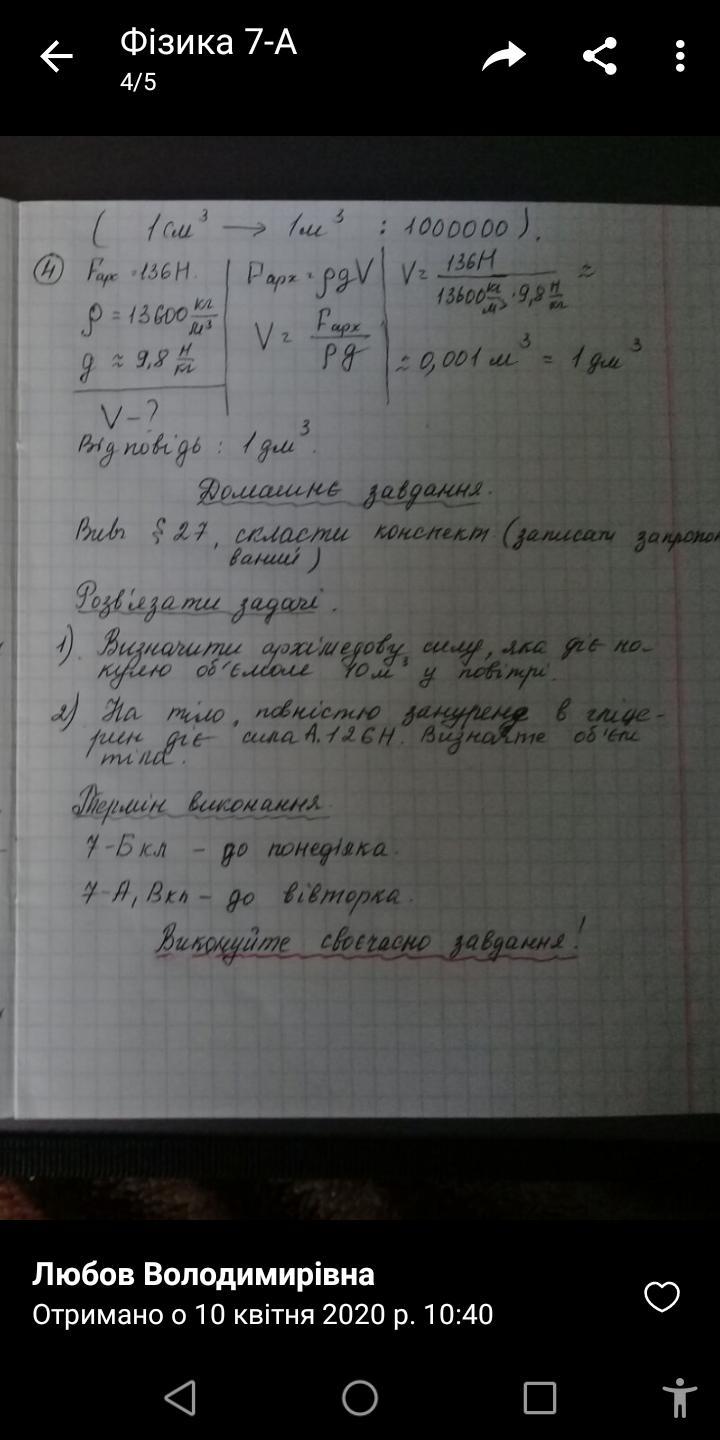 Фізика 7-А
4/5
( 1см³ → 1м³ : 1000000).
4 Fарх = 136Н. Fарх = ρgV V = 136Н / 13600 кг/м³ · 9,8 Н/кг ≈
ρ = 13600 кг/м³ V = Fарх / ρg ≈ 0,001 м³ = 1 дм³
g ≈ 9,8 Н/кг
V - ?
Відповідь : 1 дм³.
Домашнє завдання.
Вивч § 27, скласти конспект (записати запропоно
ваний)
Розв'язати задачі.
1). Визначити архімедову силу, яка діє на
кулю об'ємом 10м³ у повітрі.
2) На тіло, повністю занурене в гліце-
рин діє сила А. 126Н. Визначте об'єм
тіла.
Термін виконання.
7-Б кл - до понеділка.
7-А, В кл - до вівторка.
Виконуйте своєчасно завдання!
Любов Володимирівна
Отримано о 10 квітня 2020 р. 10:40